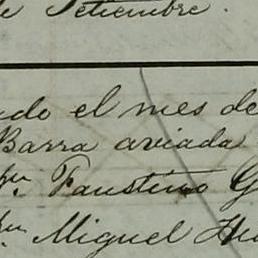 de Setiembre.
ado el mes de
Barra aviada
Faustino G
Miguel Hu